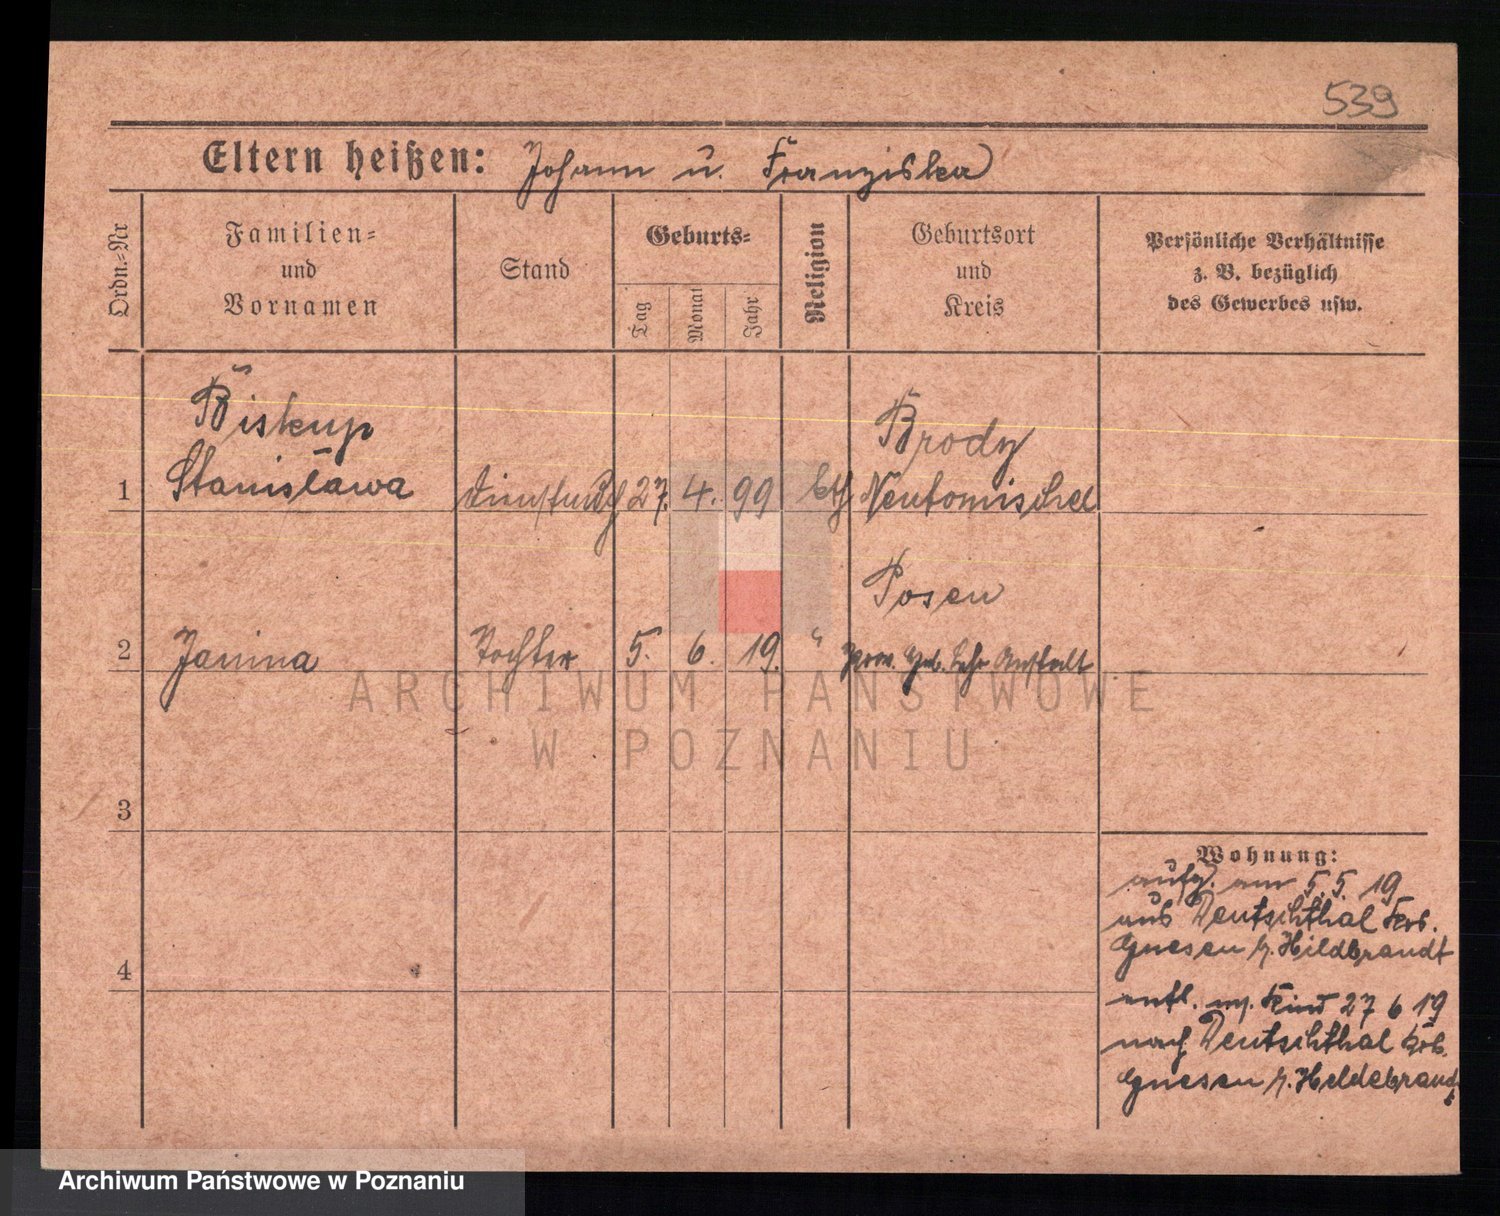 539
Eltern heißen: Johann u. Franziska
Ordn.=Nr
Familien=
und
Vornamen
Stand
Geburts=
Tag
Monat
Jahr
Religion
Geburtsort
und
Kreis
Persönliche Verhältnisse
z. B. bezüglich
des Gewerbes usw.
Biskup Brody
1 Stanisława 27. 4. 99 kth Neutomischel
Posen
2 Janina Tochter 5. 6. 19. " Prov. Heb. Lehr Anstalt
3
4
Wohnung:
aufg. am 5. 5. 19
aus Deutschthal Krs.
Gnesen b. Hildbrandt
entl. m. Kind 27 6 19
nach Deutschthal Krs.
Gnesen b. Heldebrandt
ARCHIWUM PAŃSTWOWE
W POZNANIU
Archiwum Państwowe w Poznaniu